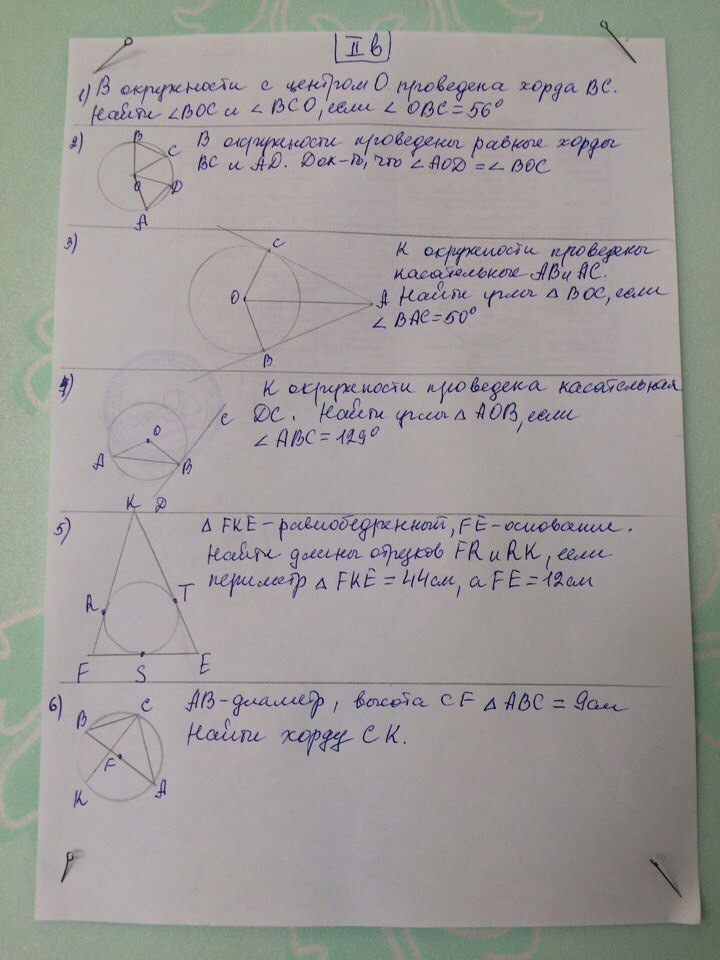 II в
1) В окружности с центром О проведена хорда ВС.
Найти ∠BOC и ∠BCO, если ∠OBC=56°
2) В окружности проведены равные хорды
B
C
BC и AD. Док-ть, что ∠AOD=∠BOC
O
D
A
3)
C
К окружности проведены
касательные AB и AC.
O
A
Найти углы △BOC, если
∠BAC=50°
B
4)
К окружности проведена касательная
C
DC. Найти углы △AOB, если
O
∠ABC=129°
A
B
K D
5)
△FKE-равнобедренный, FE-основание.
Найти длины отрезков FR и RK, если
T
периметр △FKE=44см, а FE=12см
R
F S E
6)
C
AB-диаметр, высота CF △ABC=9см
B
Найти хорду CK.
F
K
A